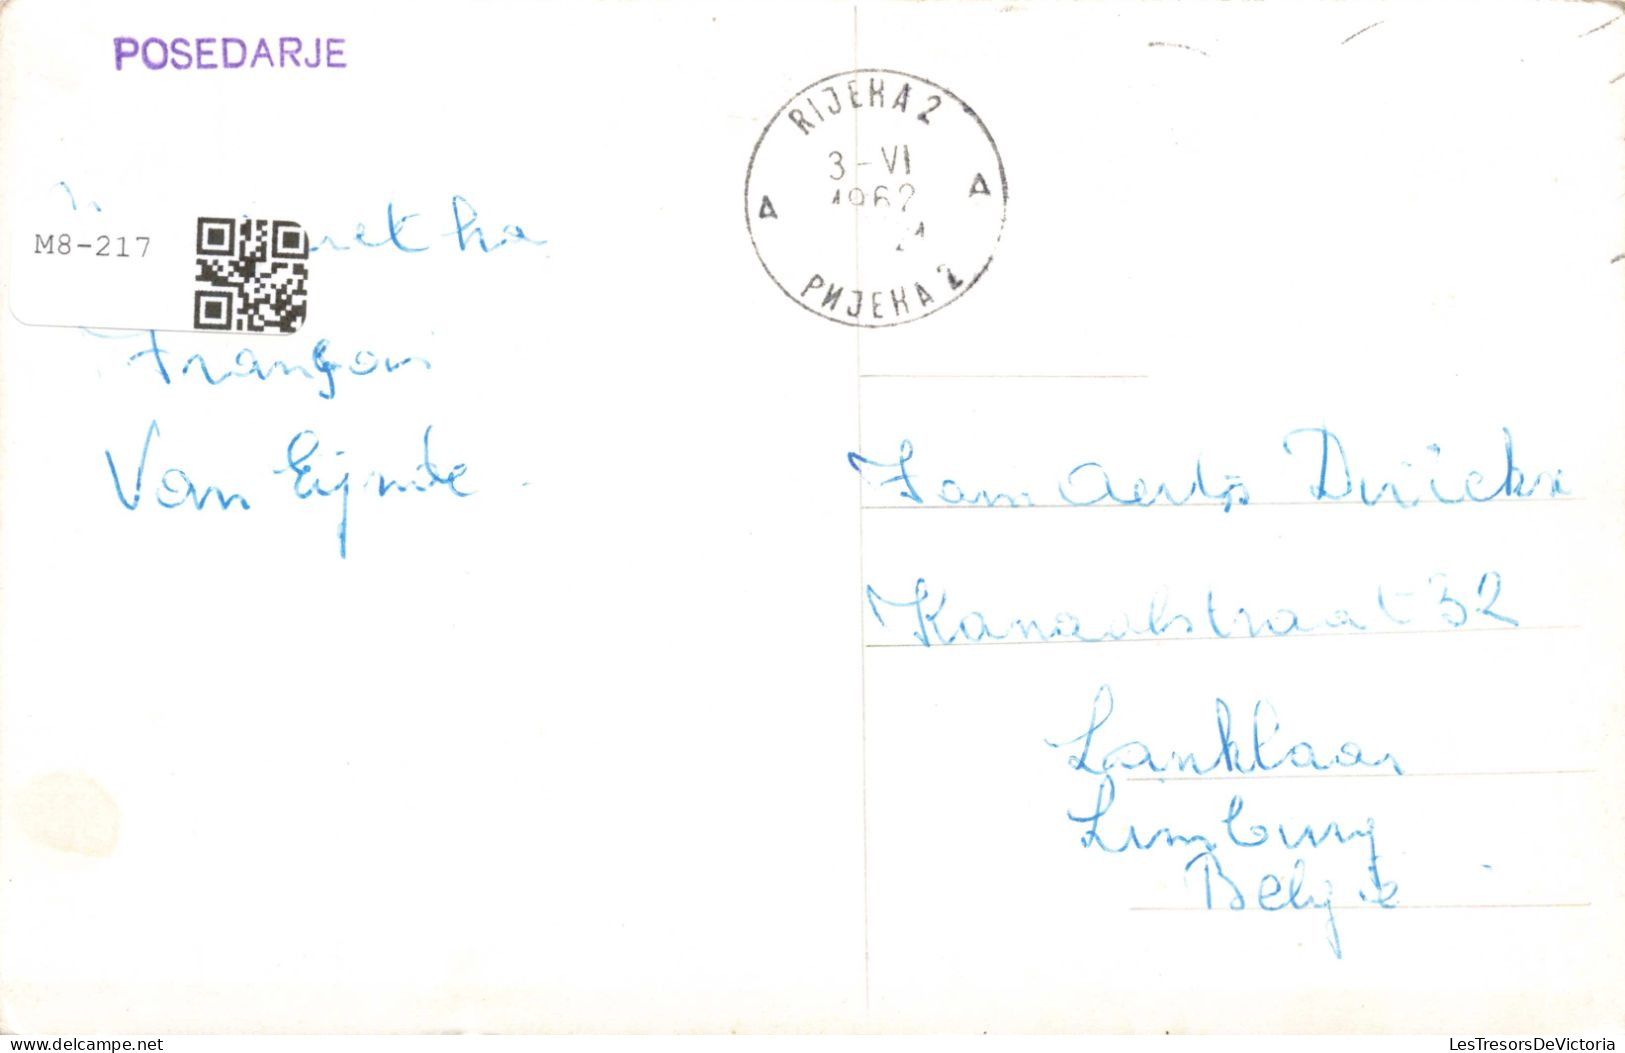 POSEDARJE
RIJEKA 2
3-VI
1962
21
A A
РИЈЕКА 2
M8-217
François
Van Eijnde
Fam Aerts Dirickx
Kanaalstraat 32
Lanklaar
Limburg
Belgie
delcampe.net
LesTresorsDeVictoria